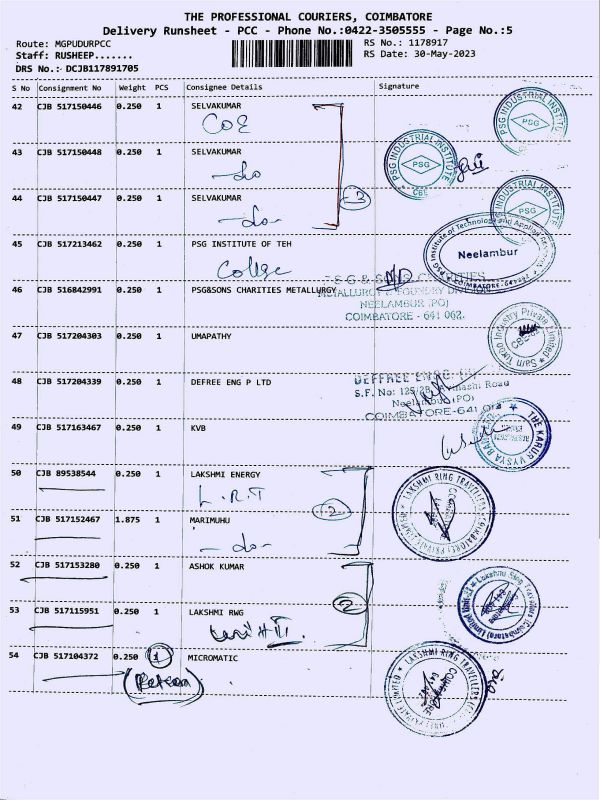 THE PROFESSIONAL COURIERS, COIMBATORE
Delivery Runsheet - PCC - Phone No.:0422-3505555 - Page No.:5
Route: MGPUDURPCC
RS No.: 1178917
Staff: RUSHEEP.......
RS Date: 30-May-2023
DRS No.:- DCJB117891705
S No Consignment No Weight PCS Consignee Details Signature
42 CJB 517150446 0.250 1 SELVAKUMAR
COE
PSG INDUSTRIAL INSTITUTE
PSG
43 CJB 517150448 0.250 1 SELVAKUMAR
-do-
PSG INDUSTRIAL INSTITUTE
PSG
CBE
44 CJB 517150447 0.250 1 SELVAKUMAR
-do-
3
PSG INDUSTRIAL INSTITUTE
PSG
45 CJB 517213462 0.250 1 PSG INSTITUTE OF TEH
College
PSG Institute of Technology and Applied
Neelambur
COIMBATORE
46 CJB 516842991 0.250 1 PSG&SONS CHARITIES METALLURGY
P S G & SONS CHARITIES
METALLURGY & FOUNDRY DIVISION
NEELAMBUR (PO)
COIMBATORE - 641 062.
47 CJB 517204303 0.250 1 UMAPATHY
Industry Private Limited
48 CJB 517204339 0.250 1 DEFREE ENG P LTD
DEFFREE ENGG.
S.F. No: 125/2B, Avinashi Road
Neelambur (PO)
COIMBATORE-641
49 CJB 517163467 0.250 1 KVB
THE KARUR VYSYA BANK
50 CJB 89538544 0.250 1 LAKSHMI ENERGY
L.R.T
2
LAKSHMI RING TRAVELLERS
51 CJB 517152467 1.875 1 MARIMUHU
-do-
52 CJB 517153280 0.250 1 ASHOK KUMAR
2
Lakshmi Ring Travellers (Coimbatore) Limited Unit
53 CJB 517115951 0.250 1 LAKSHMI RWG
Unit III
54 CJB 517104372 0.250 1 MICROMATIC
(Return)
LAKSHMI RING TRAVELLERS
PRIVATE LIMITED
COIMBATORE